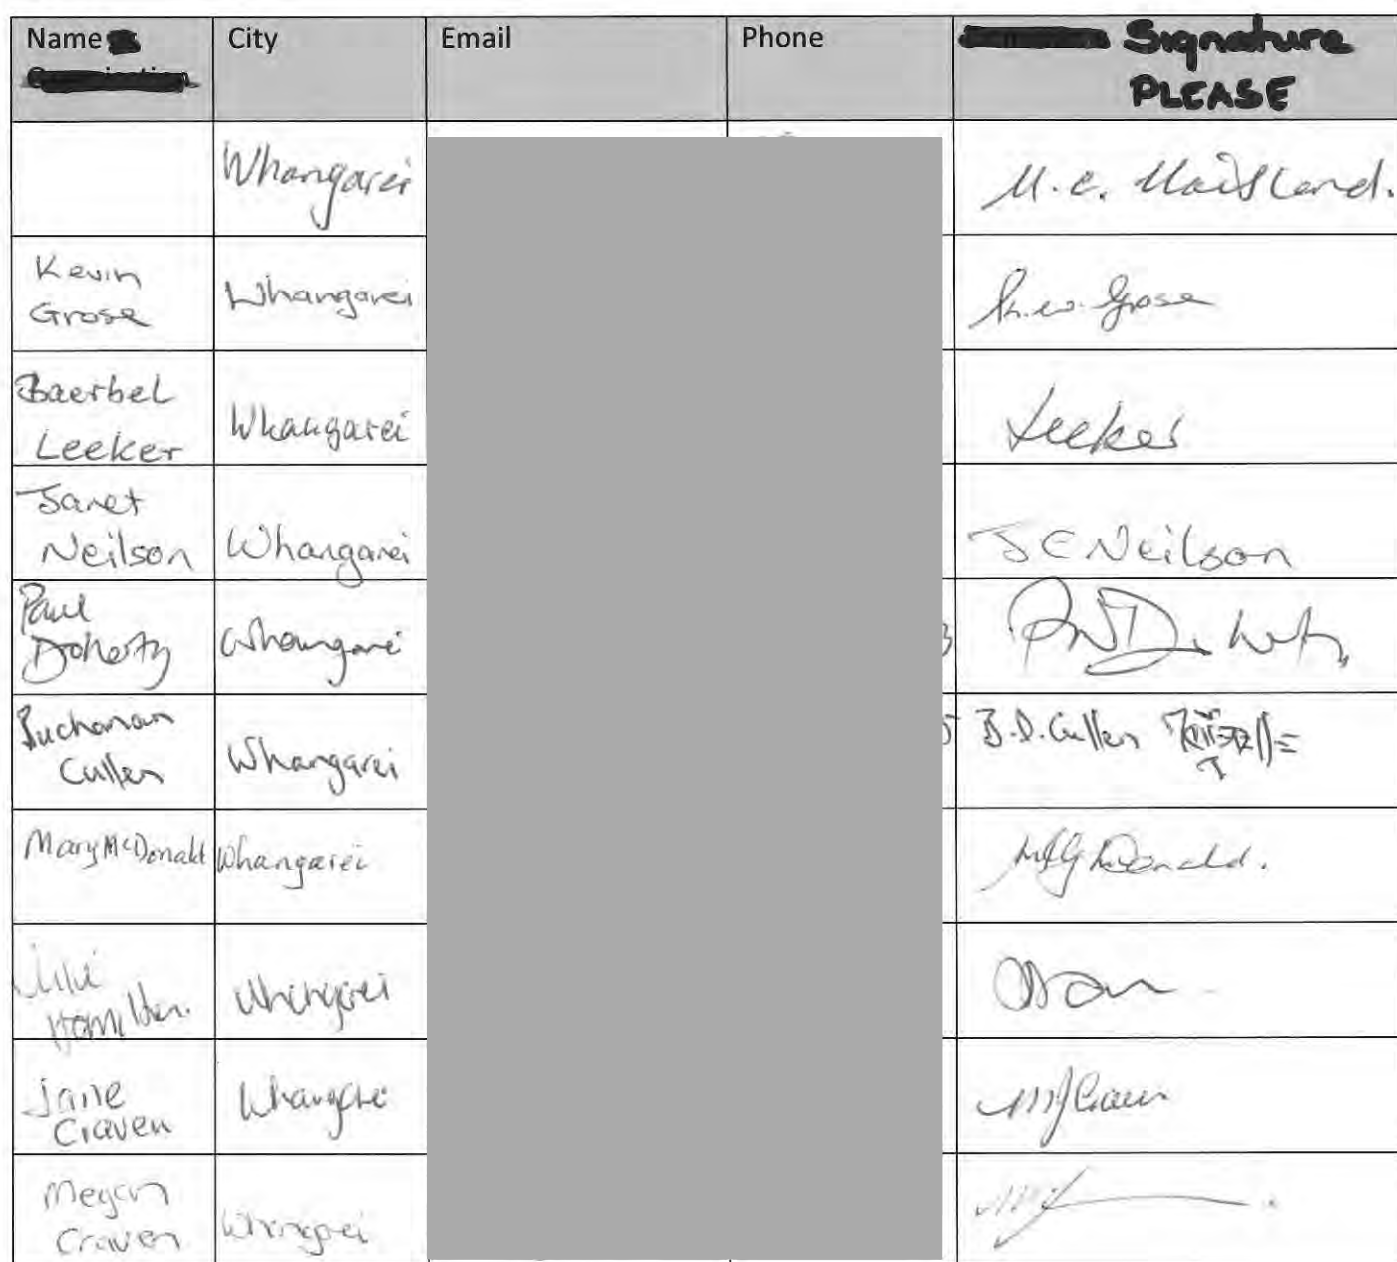 Name City Email Phone Signature
PLEASE
Whangarei M.C. Maitland.
Kevin
Grose Whangarei K.W. Grose
Baerbel
Leeker Whangarei Leeker
Janet
Neilson Whangarei J E Neilson
Paul
Doherty Whangarei
Buchanan
Cullen Whangarei B.D. Cullen
Mary McDonald Whangarei McDonald.
Hamilton. Whangarei
Jane
Craven Whangarei MJ Craven
Megan
Craven Whangarei